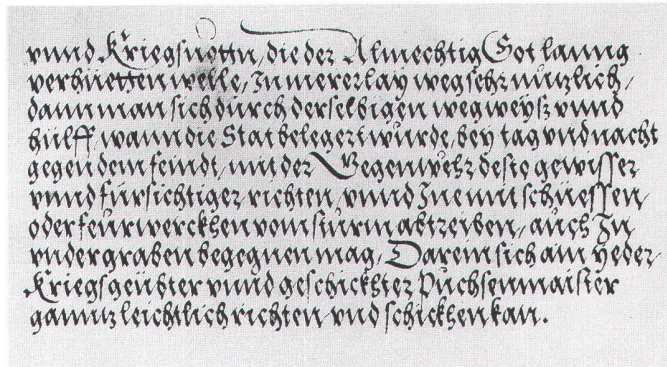 vnnd Kriegsnöttn, die der Almechtig Got lanng
verhüetten welle, In mererlay weg sehr nützlich,
dann man sich durch derselbigen wegweysz vnnd
hülff, wann die Stat belegert wurde, bey tag vnd nacht
gegen dem feindt, mit der Gegenwehr desto gewisser
vnnd fürsichtiger richten, vnnd Ine mit schiessen,
oder feurwerckhen vom sturm abtreiben, auch In
vndergraben begegnen mag, Darein sich ain yeder,
Kriegsgeübter vnnd geschickhter Puchsenmaister
ganntz leichtlich richten vnd schickhen kan.